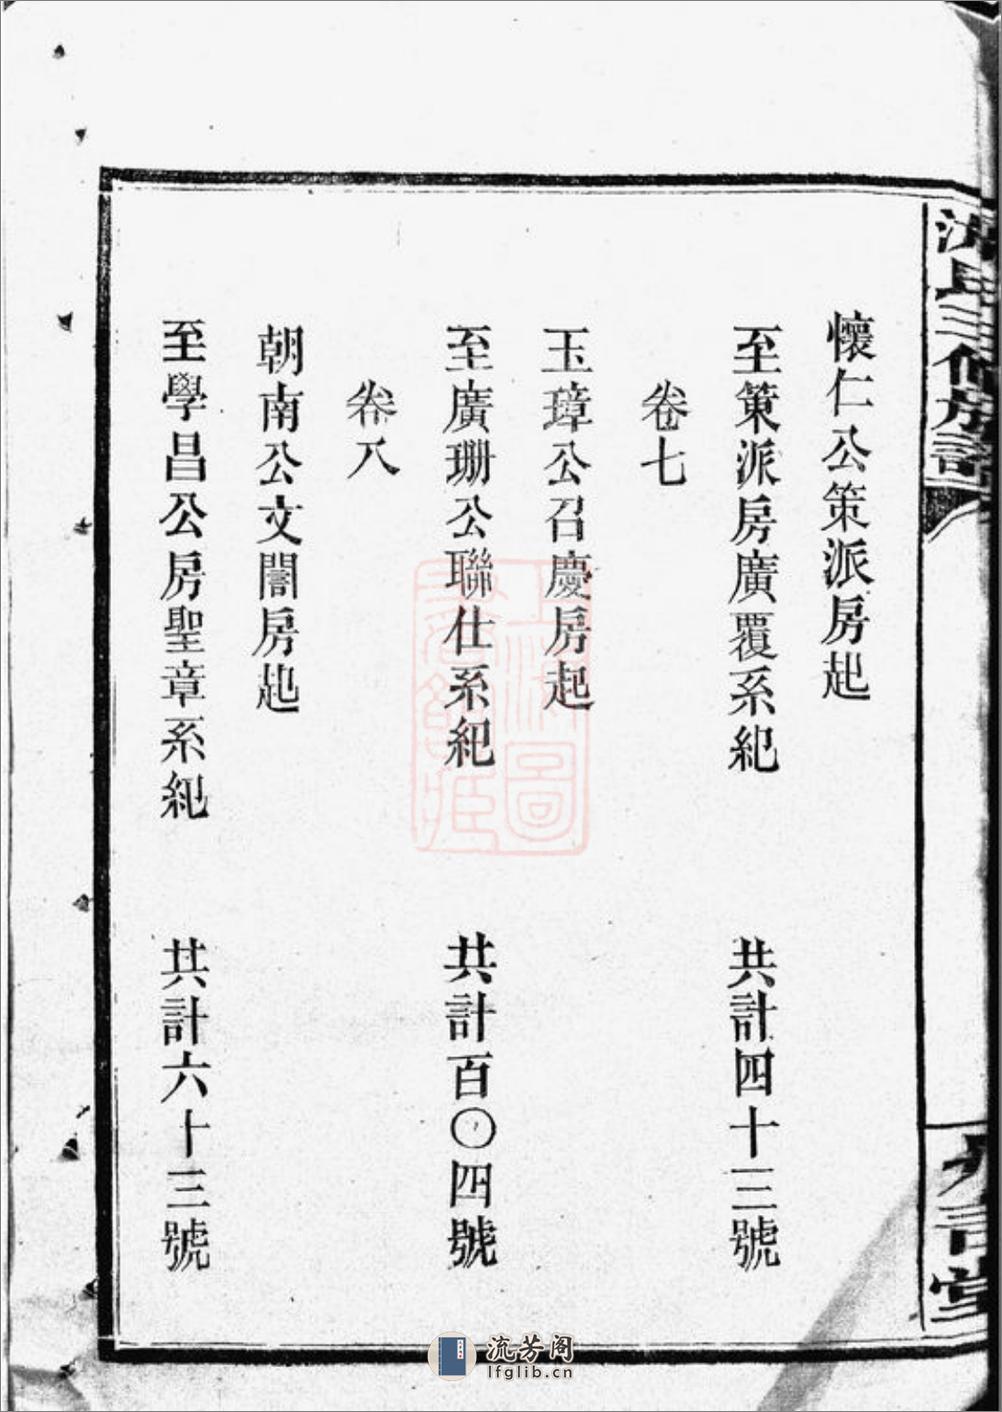 懷仁公策派房起
至策派房廣覆系紀 共計四十三號
卷七
玉璋公召慶房起
至廣珊公聯仕系紀 共計百〇四號
卷八
朝南公文誾房起
至學昌公房聖章系紀 共計六十三號
氏三修房譜
流芳阁
lfglib.cn